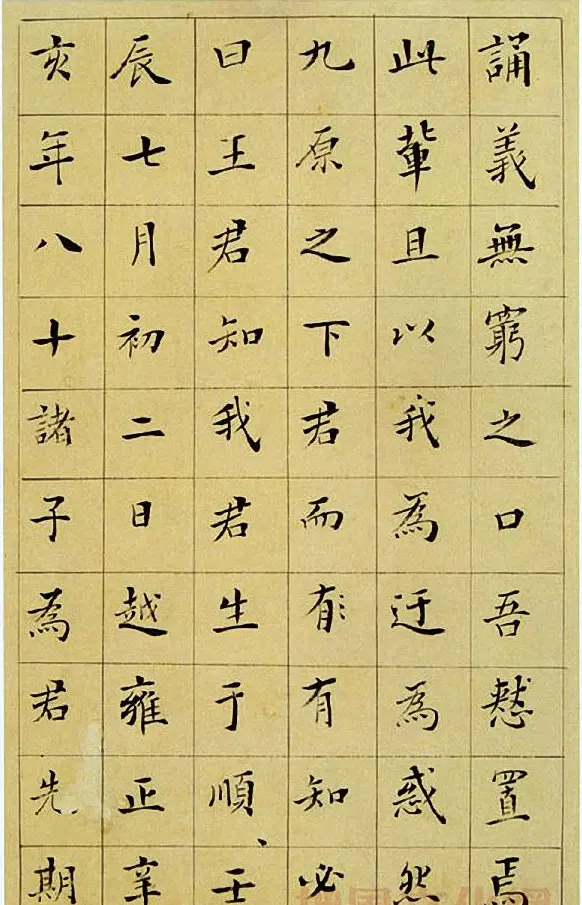 誦義無窮之口吾憖置焉
此輩且以我為迂為惑然
九原之下君而有有知必
曰王君知我君生于順壬
辰七月初二日越雍正辛
亥年八十諸子為君先期